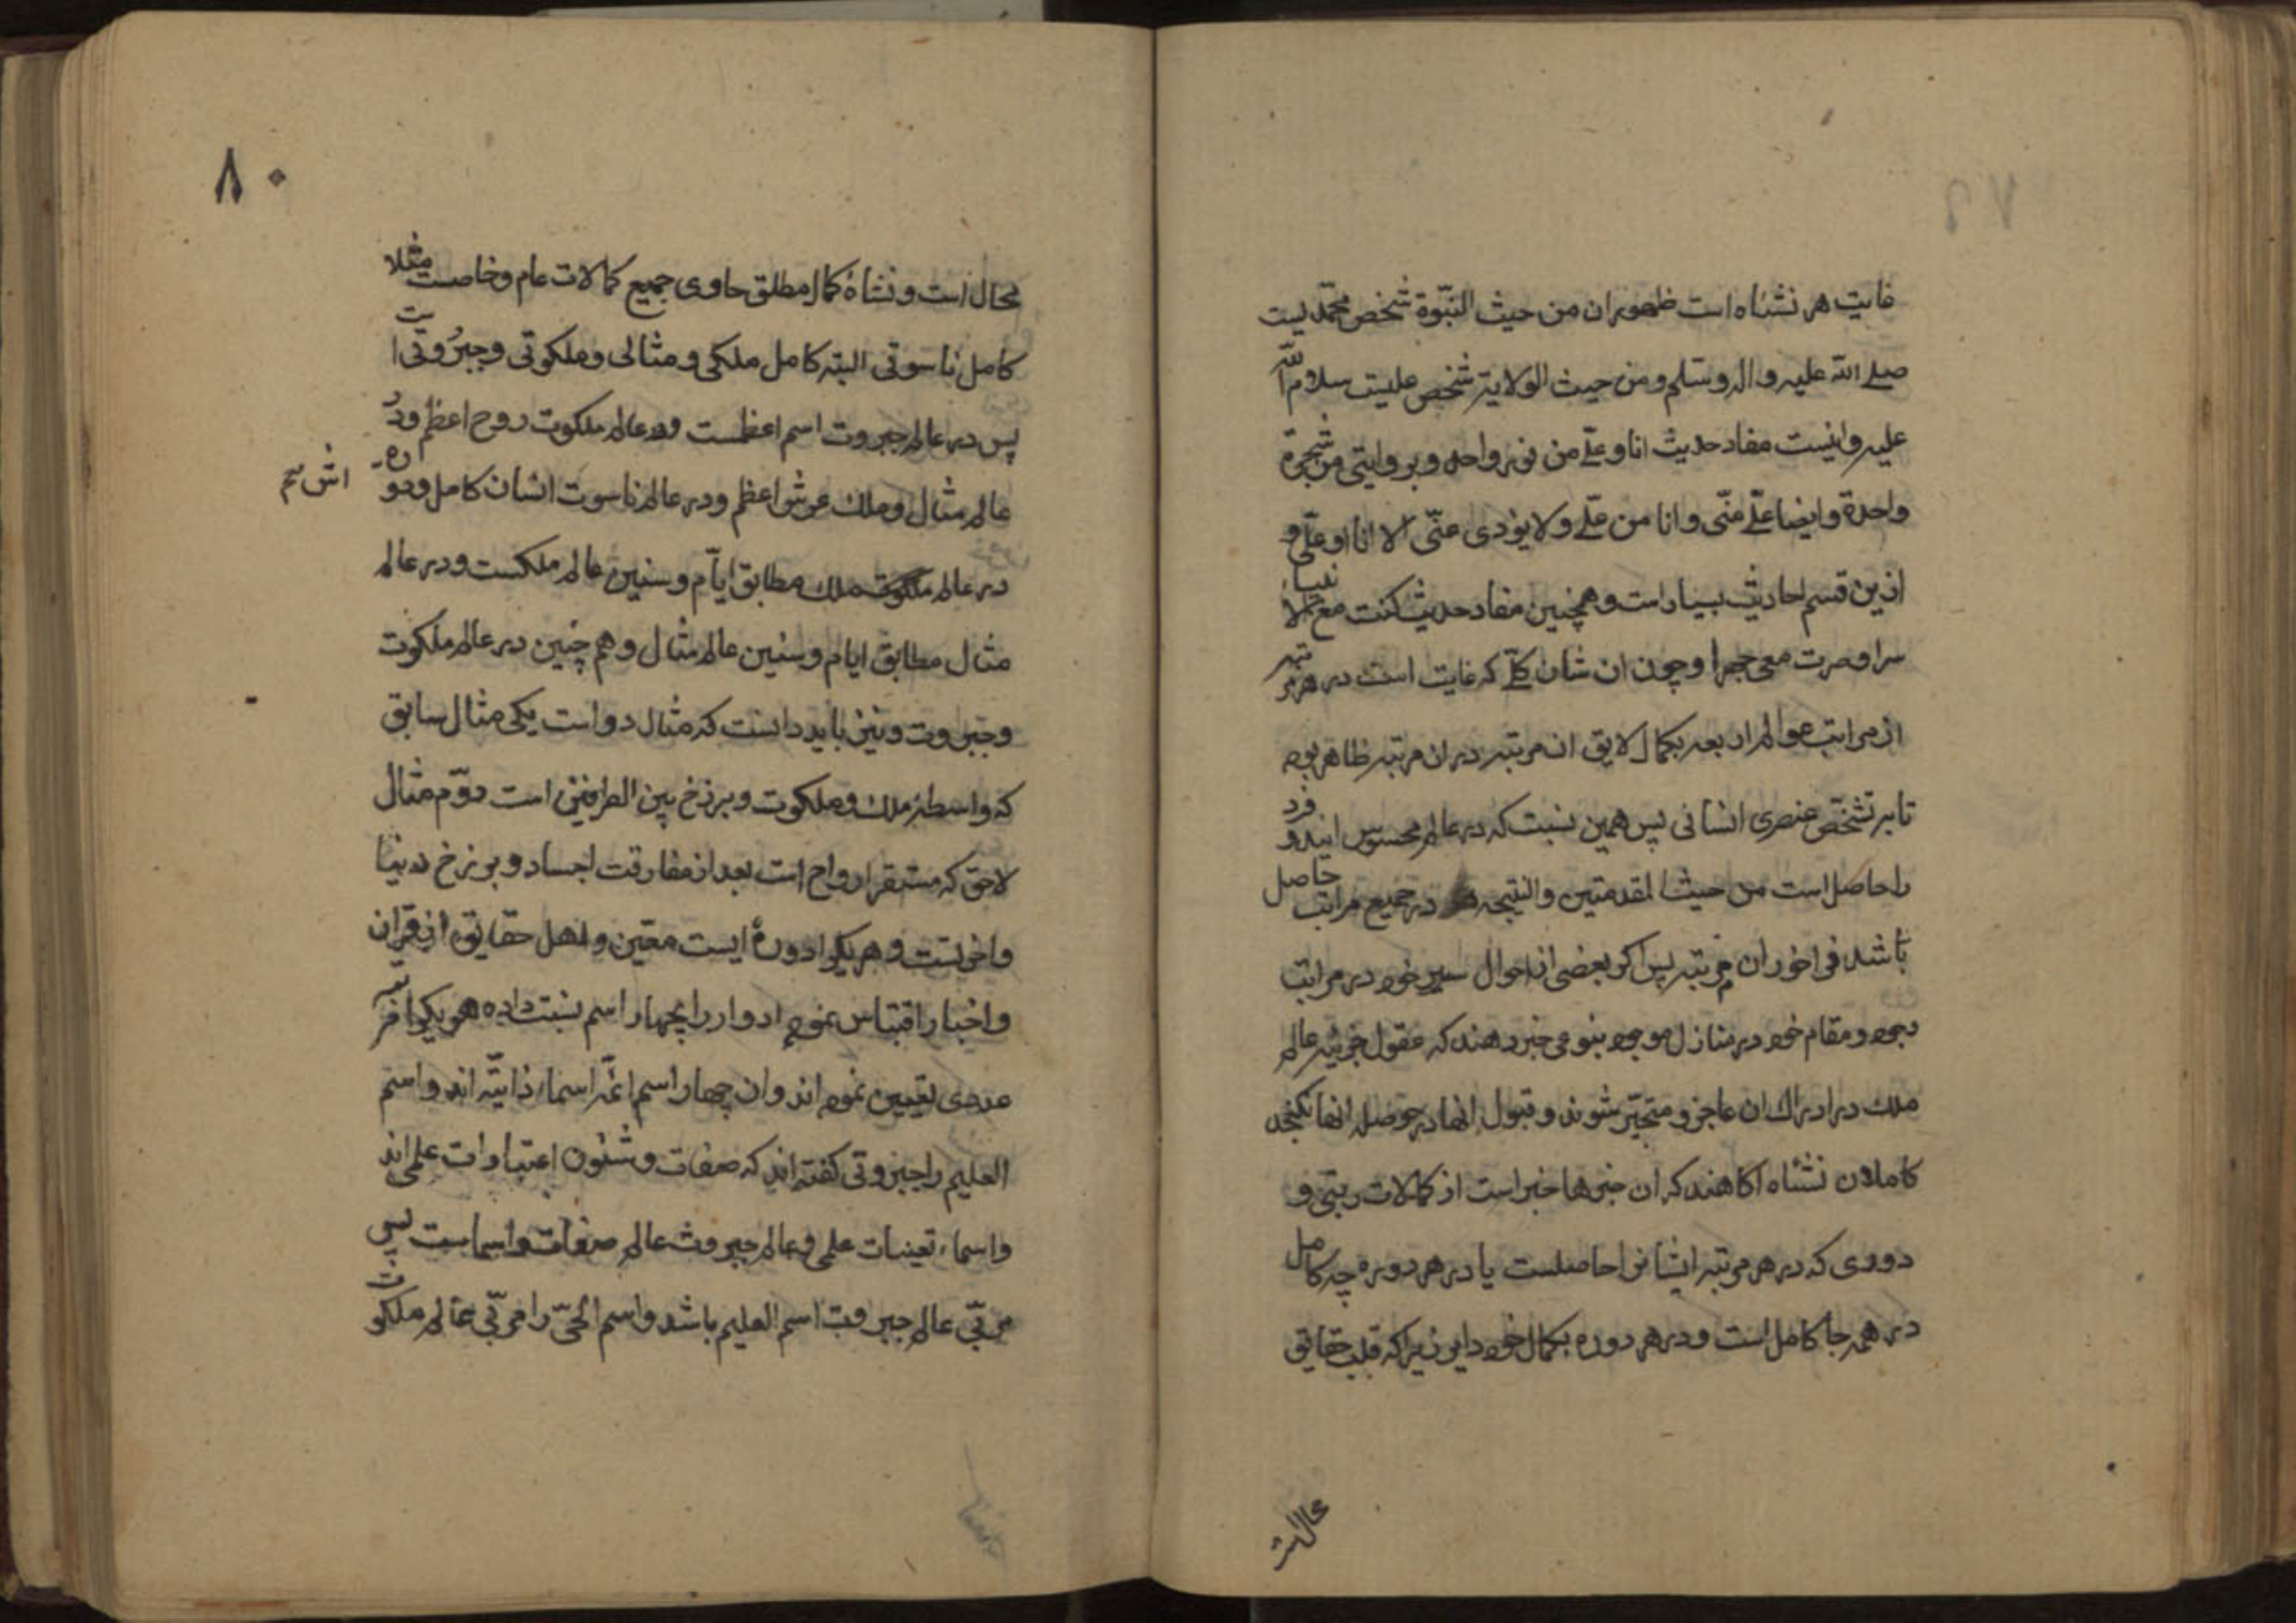 غایت هر نشاه است ظهور ان من حیث النبّوة شخص محمّدیست
صلے الله علیه واله وسلم ومن حیث الولایة شخص علیست سلام الله
علیه واینست مفاد حدیث انا وعلے من نور واحد وبروایتی من شجرة
واحدة وایضا علّے منّی وانا من علّے ولا یؤدی عنّی الا انا او علّی و
ازین قسم احادیث بسیار است وهمچنین مفاد حدیث کنت مع الانبیا
سرا وصرت معی جهرا وچون ان شان کلّے که غایت است در هر مرتبه
از مراتب عوالم اربعه بکمال لایق ان مرتبه در ان مرتبه ظاهر بود
تا بر تشخّص عنصری انسانی پس همین نسبت که در عالم محسوس این دو فرد
را حاصل است من حیث المقدمتین والنتیجه در جمیع مراتب حاصل
باشد فراخور ان مرتبه پس اکر بعضی از احوال سیر خود در مراتب
وجود ومقام خود در منازل موجود بنوعی خبر دهند که عقول جزئیه عالم
ملك در ادراك ان عاجز ومتحیّر شوند وقبول انها در حوصله انها نکنجد
کاملان نشئاه اکاهند که ان خبرها خبر است از کمالات رتبتی و
دوری که در هر مرتبه ایشانرا حاصلست یا در هر دوره چه کامل
در همه جا کامل است ودر هر دوره بکمال خود دایر زیرا که قلب حقایق
محال است
۸۰
محال است ونشاهٔ کمال مطلق حاوی جمیع کمالات عام وخاصست مثلا
کامل ناسوتی البته کامل ملکی ومثالی وملکوتی وجبروتی است
پس در عالم جبروت اسم اعظمست ودر عالم ملکوت روح اعظم ودر
عالم مثال وملك عرش اعظم ودر عالم ناسوت انسان کامل ودوره
اش هم
در عالم ملکوت ملك مطابق ایّام وسنین عالم ملکست ودر عالم
مثال مطابق ایام وسنین عالم مثال وهم چنین در عالم ملکوت
وجبروت ونیز باید دانست که مثال دو است یکی مثال سابق
که واسطهٔ ملك وملکوت وبرزخ بین الطرفین است دوّم مثال
لاحق که مستقر ارواح است بعد از مفارقت اجساد وبرزخ دنیا
واخرتست وهریکرا دورهٔ ایست معیّن واهل حقایق از قران
واخبار اقتباس نموده ادوار را بچهار اسم نسبت داده هریکرا
عددی تعیین نموده اند وان چهار اسم ائمّه اسماء ذاتیّه اند واسم
العلیم را جبروتی کفته اند که صفات وشئون اعتبارات علمی اند
واسماء تعینات علمی وعالم جبروت عالم صفات واسماست پس
مربّی عالم جبروت اسم العلیم باشد واسم الحیّ را مربّی عالم ملکوت